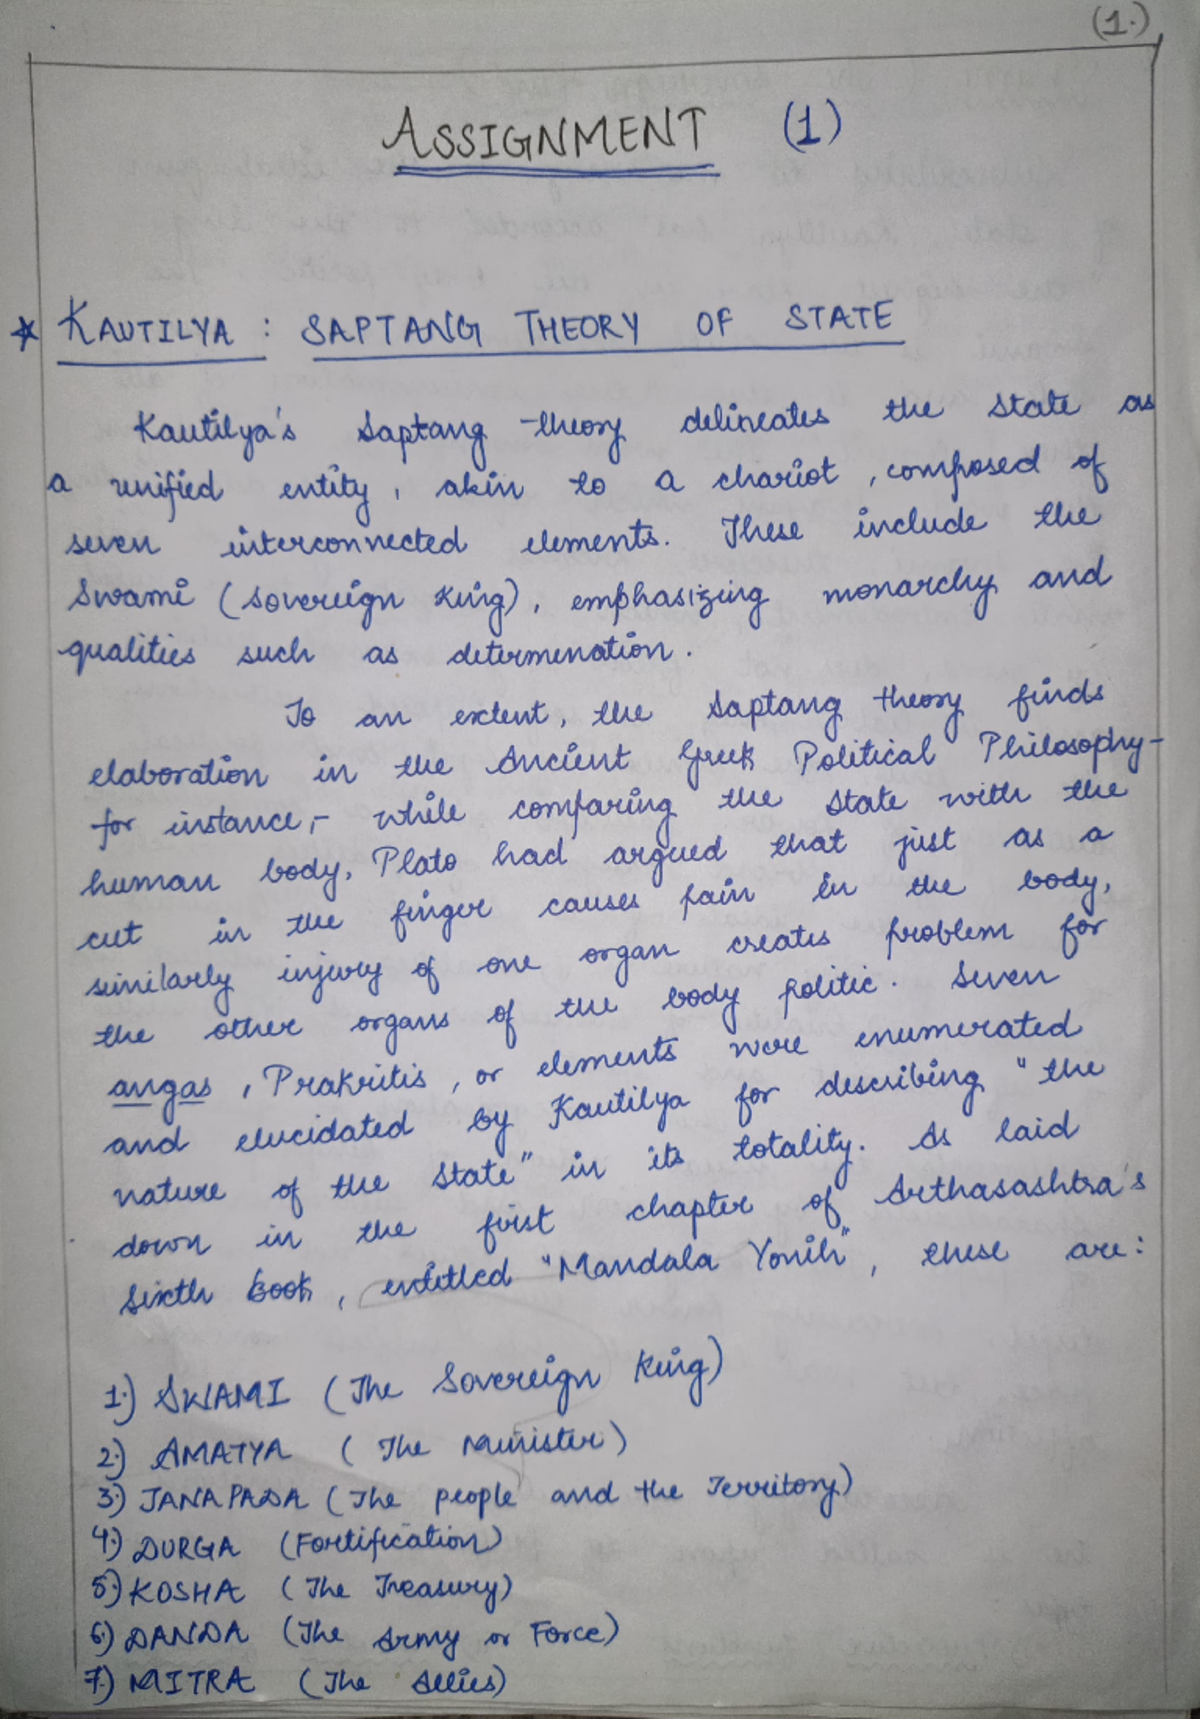 (1.)
ASSIGNMENT (1)
* KAUTILYA : SAPTANG THEORY OF STATE
Kautilya's Saptang theory delineates the state as
a unified entity, akin to a chariot, composed of
seven interconnected elements. These include the
Swami (Sovereign King), emphasizing monarchy and
qualities such as determenation.
To an extent, the Saptang theory finds
elaboration in the Ancient Greek Political Philosophy-
for instance,- while comparing the state with the
human body, Plato had argued that just as a
cut in the finger causes pain in the body,
similarly injury of one organ creates problem for
the other organs of the body politic. Seven
angas, Prakritis, or elements were enumerated
and elucidated by Kautilya for describing "the
nature of the State" in its totality. As laid
down in the first chapter of Arthasashtra's
Sixth book, entitled "Mandala Yonih", these are:
1.) SWAMI (The Sovereign King)
2.) AMATYA (The Minister)
3.) JANAPADA (The people and the Territory)
4.) DURGA (Fortification)
5.) KOSHA (The Treasury)
6.) DANDA (The Army or Force)
7.) MITRA (The Allies)